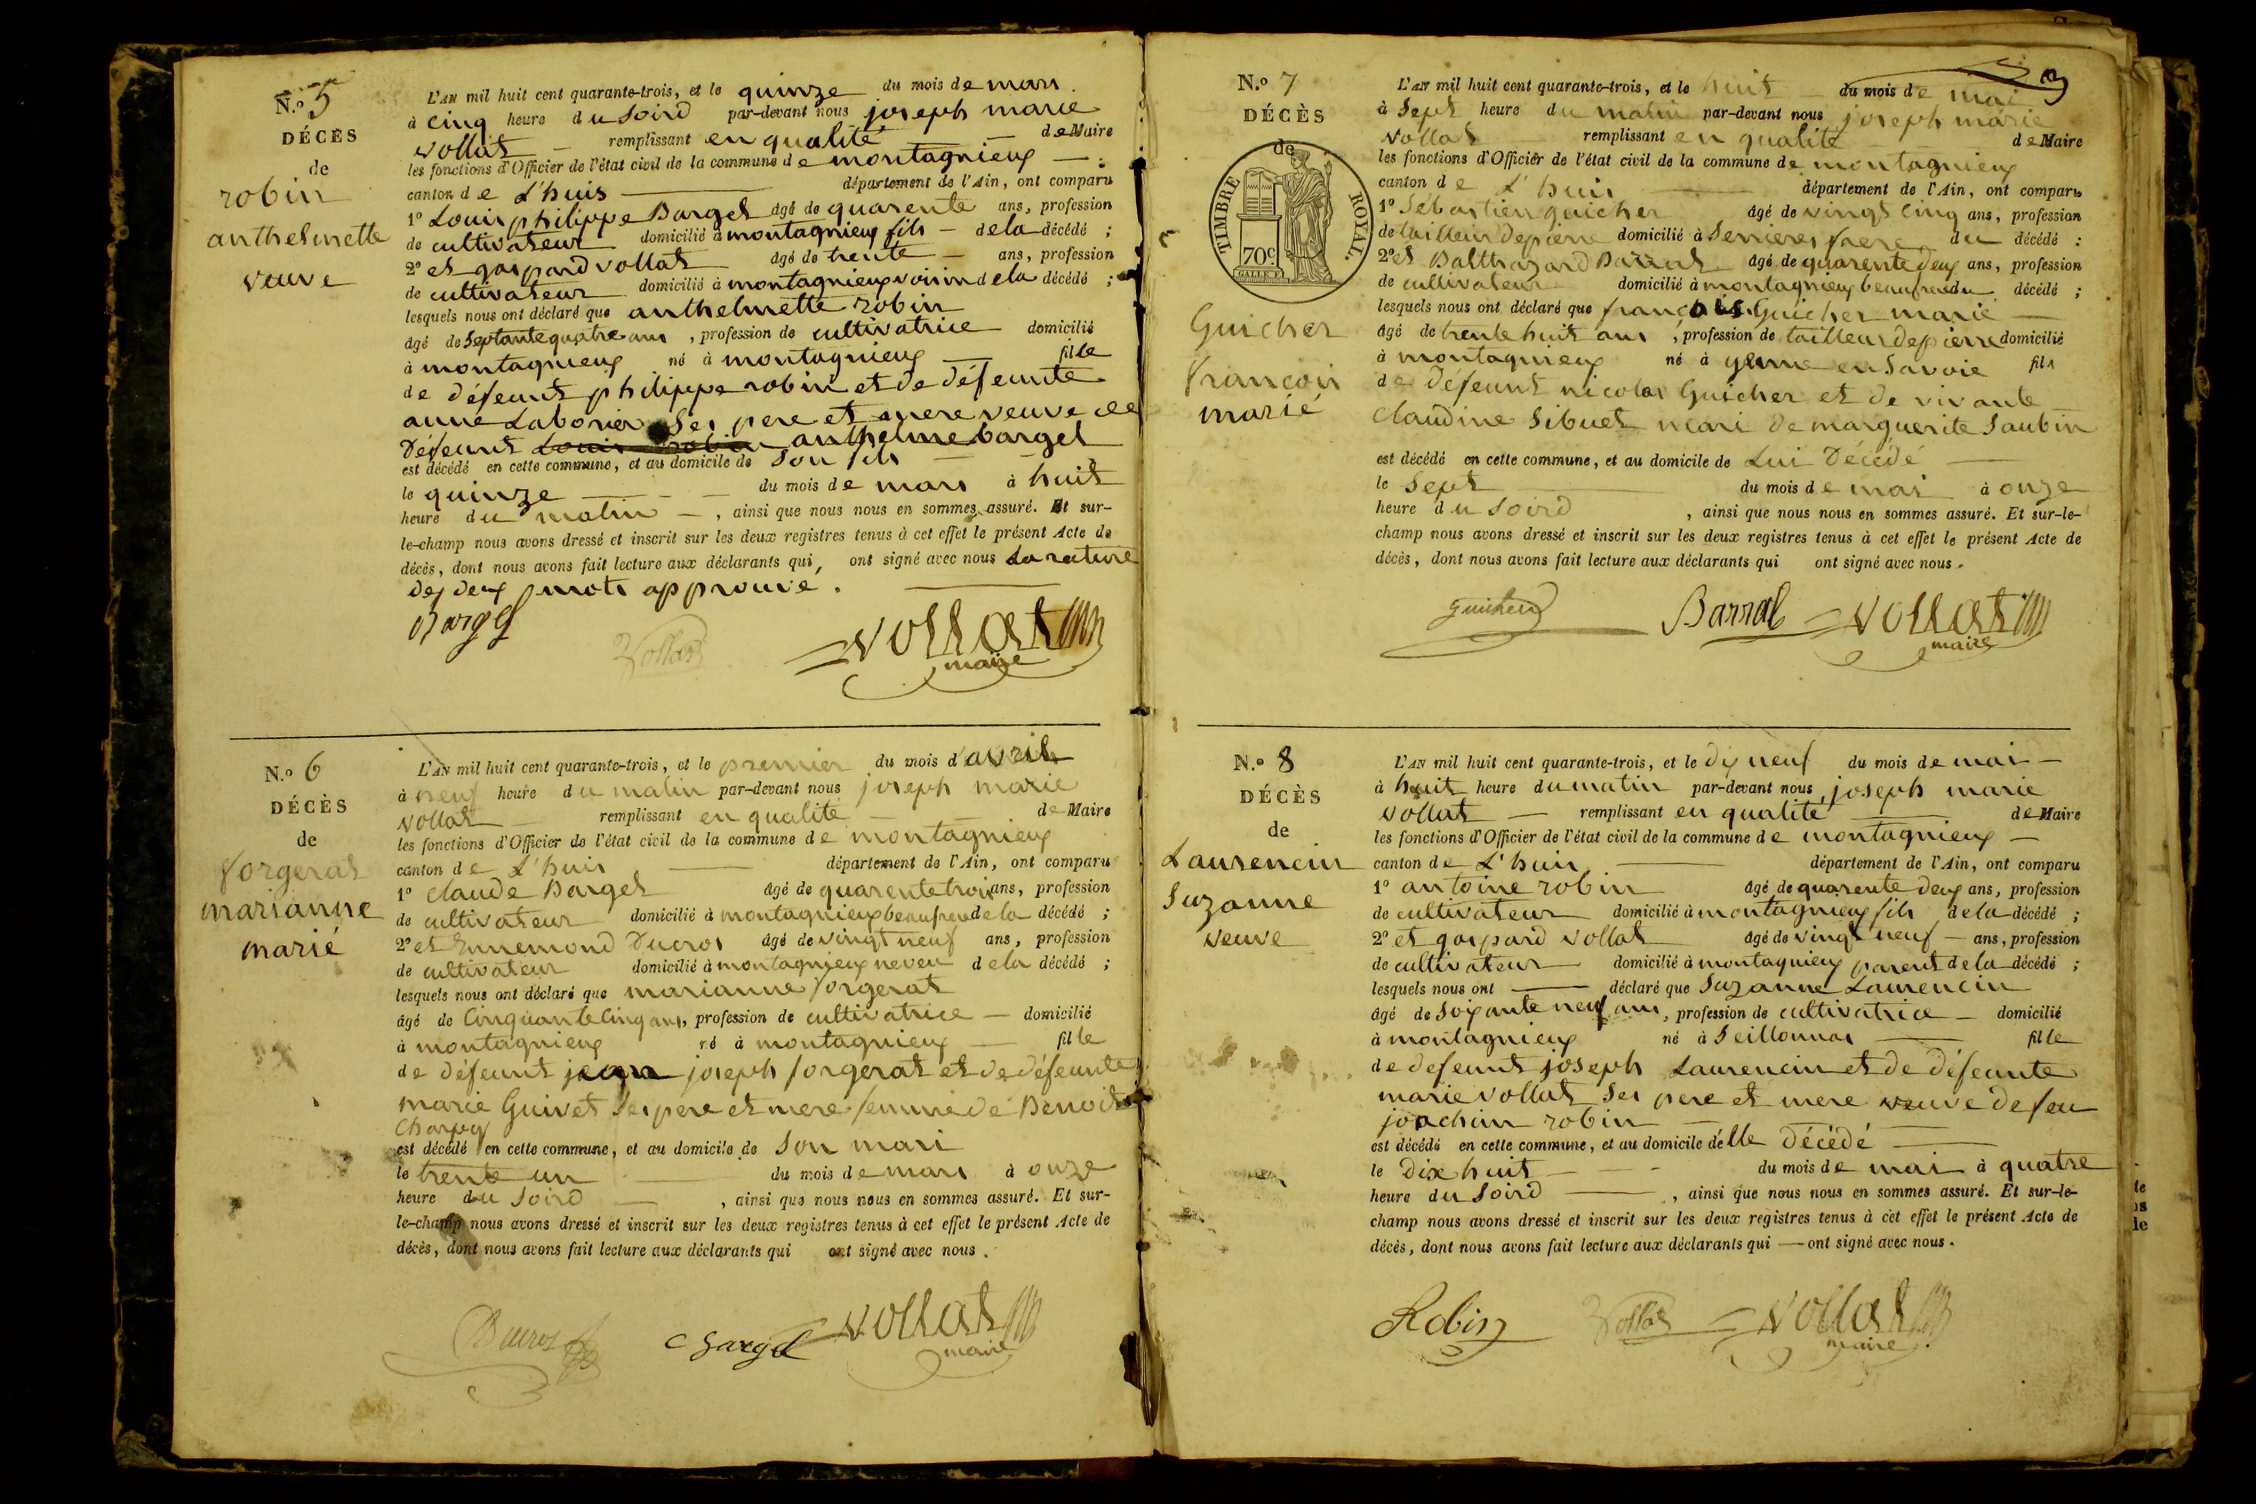 N.o 5
DÉCÈS
de
robin
anthelmette
veuve
L'AN mil huit cent quarante-trois, et le quinze du mois de mars
à cinq heure du soird par-devant nous joseph marie
vollat remplissant en qualité de Maire
les fonctions d'Officier de l'état civil de la commune de montagnieux
canton de L'huis département de l'Ain, ont comparu
1o Louis philippe Barget âgé de quarente ans, profession
de cultivateur domicilié à montagnieux fils de la décédé ;
2o et gaspard vollat âgé de trente ans, profession
de cultivateur domicilié à montagnieux voisin de la décédé ;
lesquels nous ont déclaré que anthelmette robin
âgé de septante quatre ans, profession de cultivatrice domicilié
à montagnieux né à montagnieux fille
de défeunt philippe robin et de défeunte
anne Laborier ses pere et mere veuve de
défeunt Louis robin anthelme barget
est décédé en cette commune, et au domicile de son fils
le quinze du mois de mars à huit
heure du matin, ainsi que nous nous en sommes assuré. Et sur-
le-champ nous avons dressé et inscrit sur les deux registres tenus à cet effet le présent Acte de
décès, dont nous avons fait lecture aux déclarants qui, ont signé avec nous La rature
des deux mots approuvé.
Barget Vollat vollat
maire
N.o 6
DÉCÈS
de
forgerat
marianne
marié
L'AN mil huit cent quarante-trois, et le premier du mois d'avril
à neuf heure du matin par-devant nous joseph marie
vollat remplissant en qualité de Maire
les fonctions d'Officier de l'état civil de la commune de montagnieux
canton de L'huis département de l'Ain, ont comparu
1o claude Barget âgé de quarente trois ans, profession
de cultivateur domicilié à montagnieux beaufrere de la décédé ;
2o et Ennemond Ducros âgé de vingt neuf ans, profession
de cultivateur domicilié à montagnieux neveu de la décédé ;
lesquels nous ont déclaré que marianne forgerat
âgé de Cinquante Cinq ans, profession de cultivatrice domicilié
à montagnieux né à montagnieux fille
de défeunt jean joseph forgerat et de défeunte
marie Guivet ses pere et mere femme de Benoit
Charpy
est décédé en cette commune, et au domicile de son mari
le trente un du mois de mars à onze
heure du soird, ainsi que nous nous en sommes assuré. Et sur-
le-champ nous avons dressé et inscrit sur les deux registres tenus à cet effet le présent Acte de
décès, dont nous avons fait lecture aux déclarants qui ont signé avec nous.
Ducros C Barget vollat
maire
3
N.o 7
DÉCÈS
de
TIMBRE ROYAL.
70c
Guicher
francois
marié
L'AN mil huit cent quarante-trois, et le huit du mois de mai
à sept heure du matin par-devant nous joseph marie
vollat remplissant en qualité de Maire
les fonctions d'Officier de l'état civil de la commune de montagnieux
canton de L'huis département de l'Ain, ont comparu
1o Sébastien guicher âgé de vingt cinq ans, profession
de tailleur de pierre domicilié à Serrieres frere du décédé :
2o et Balthazard Barral âgé de quarente deux ans, profession
de cultivateur domicilié à montagnieux beaufrere du décédé ;
lesquels nous ont déclaré que francois Guicher marie
âgé de trente huit ans, profession de tailleur de pierre domicilié
à montagnieux né à yenne en Savoie fils
de défeunt nicolas Guicher et de vivante
claudine Sibuet mari de marguerite Saubin
est décédé en cette commune, et au domicile de Lui Décédé
le Sept du mois de mai à onze
heure du soird, ainsi que nous nous en sommes assuré. Et sur-le-
champ nous avons dressé et inscrit sur les deux registres tenus à cet effet le présent Acte de
décès, dont nous avons fait lecture aux déclarants qui ont signé avec nous.
Guicher Barral vollat
maire
N.o 8
DÉCÈS
de
Laurencin
Suzanne
veuve
L'AN mil huit cent quarante-trois, et le dix neuf du mois de mai
à huit heure du matin par-devant nous joseph marie
vollat remplissant en qualité de Maire
les fonctions d'Officier de l'état civil de la commune de montagnieux
canton de L'huis département de l'Ain, ont comparu
1o antoine robin âgé de quarente deux ans, profession
de cultivateur domicilié à montagnieux fils de la décédé ;
2o et gaspard vollat âgé de vingt neuf ans, profession
de cultivateur domicilié à montagnieux parent de la décédé ;
lesquels nous ont déclaré que Suzanne Laurencin
âgé de soixante neuf ans, profession de cultivatrice domicilié
à montagnieux né à Seillonnas fille
de defeunt joseph Laurencin et de défeunte
marie vollat ses pere et mere veuve de feu
joachim robin
est décédé en cette commune, et au domicile d'elle décédé
le dix huit du mois de mai à quatre
heure du soird, ainsi que nous nous en sommes assuré. Et sur-le-
champ nous avons dressé et inscrit sur les deux registres tenus à cet effet le présent Acte de
décès, dont nous avons fait lecture aux déclarants qui ont signé avec nous.
Robin Vollat vollat
maire